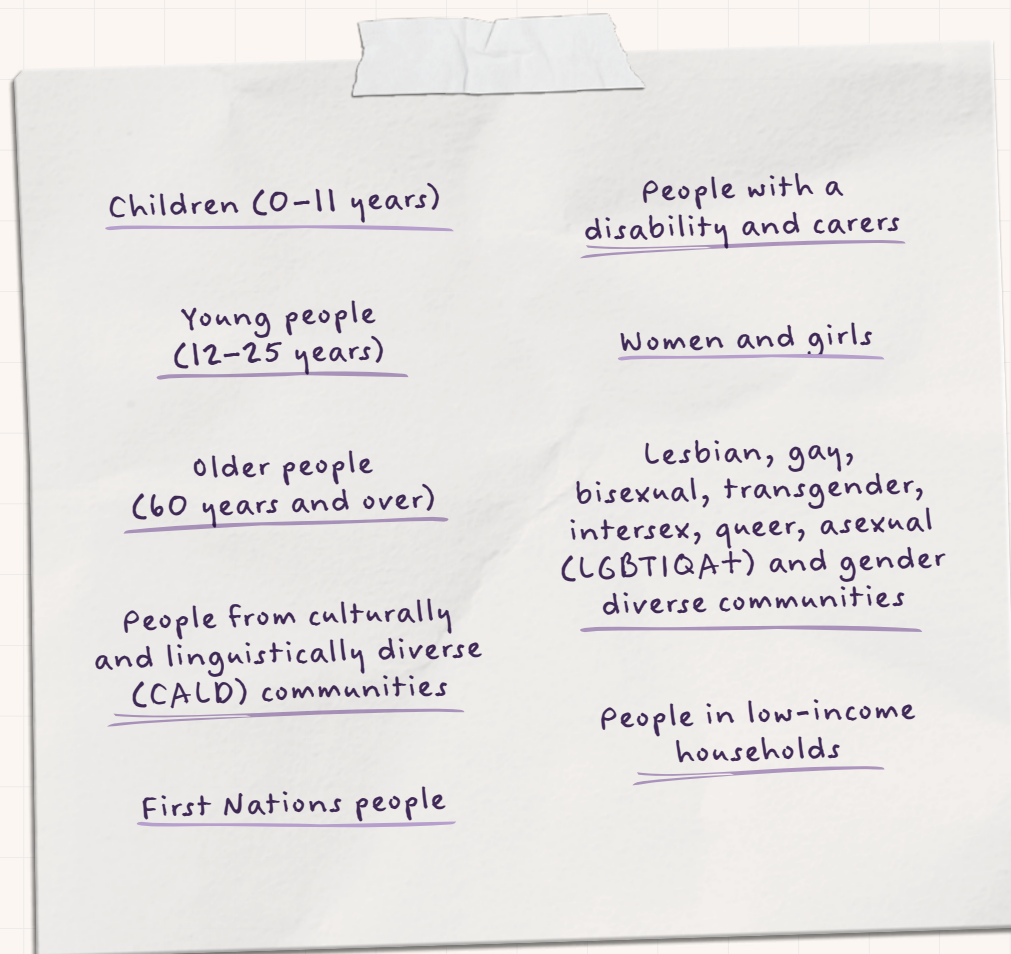 Children (0-11 years)
Young people
(12-25 years)
Older people
(60 years and over)
People from culturally
and linguistically diverse
(CALD) communities
First Nations people
People with a
disability and carers
Women and girls
Lesbian, gay,
bisexual, transgender,
intersex, queer, asexual
(LGBTIQA+) and gender
diverse communities
People in low-income
households